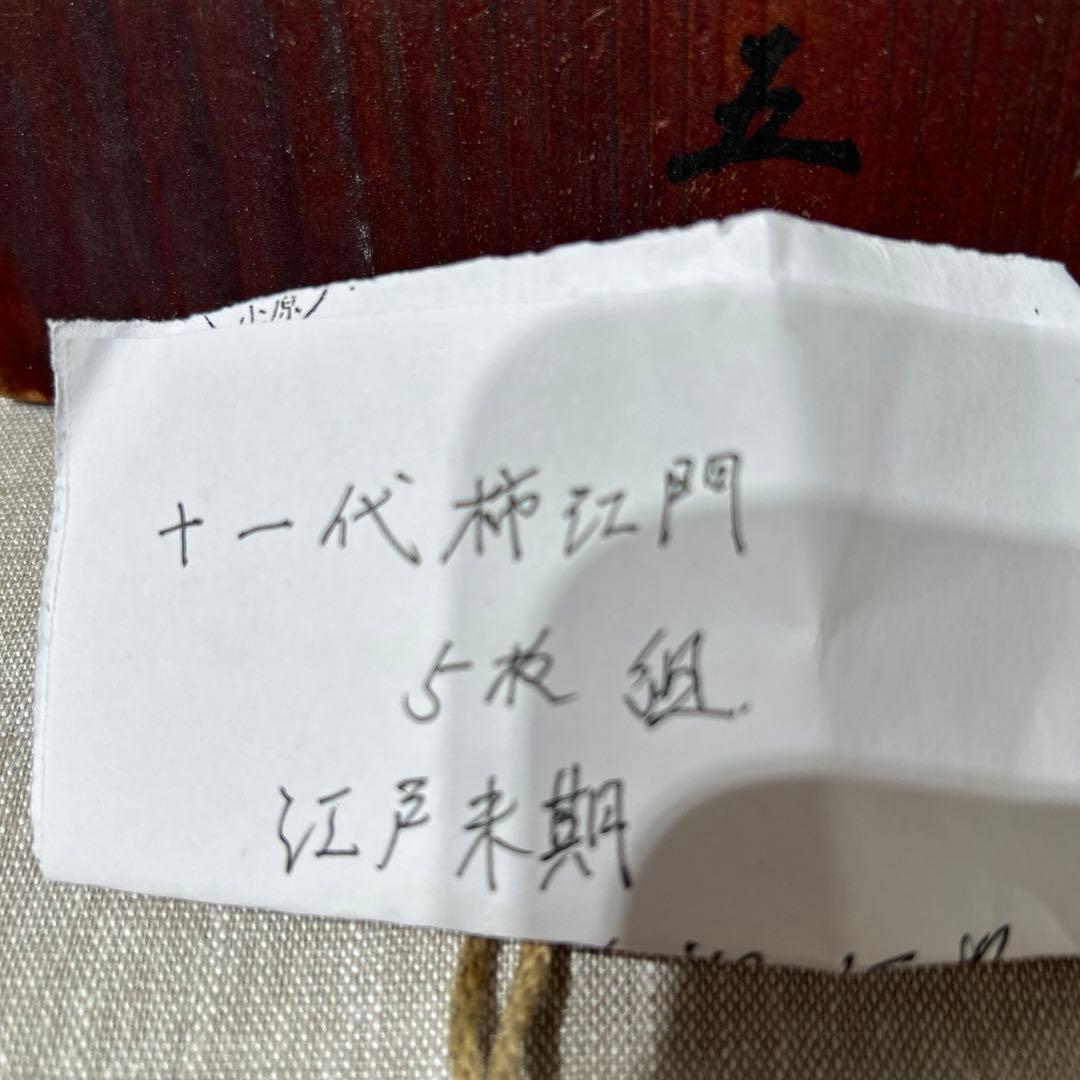 五
小原
十一代柿江門
5枚組.
江戸末期